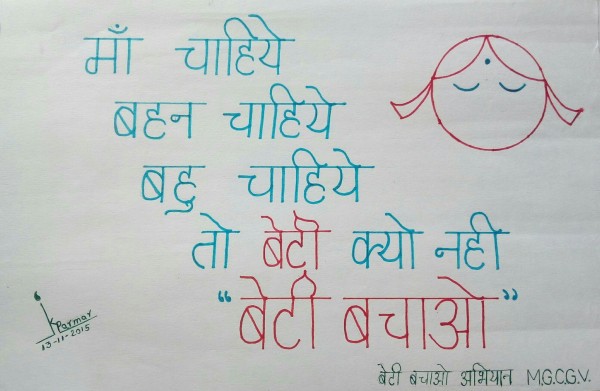 माँ चाहिये
बहन चाहिये
बहु चाहिये
तो बेटी क्यो नही
“बेटी बचाओ”
K Parmar
13-11-2015
बेटी बचाओ अभियान M.G.C.G.V.